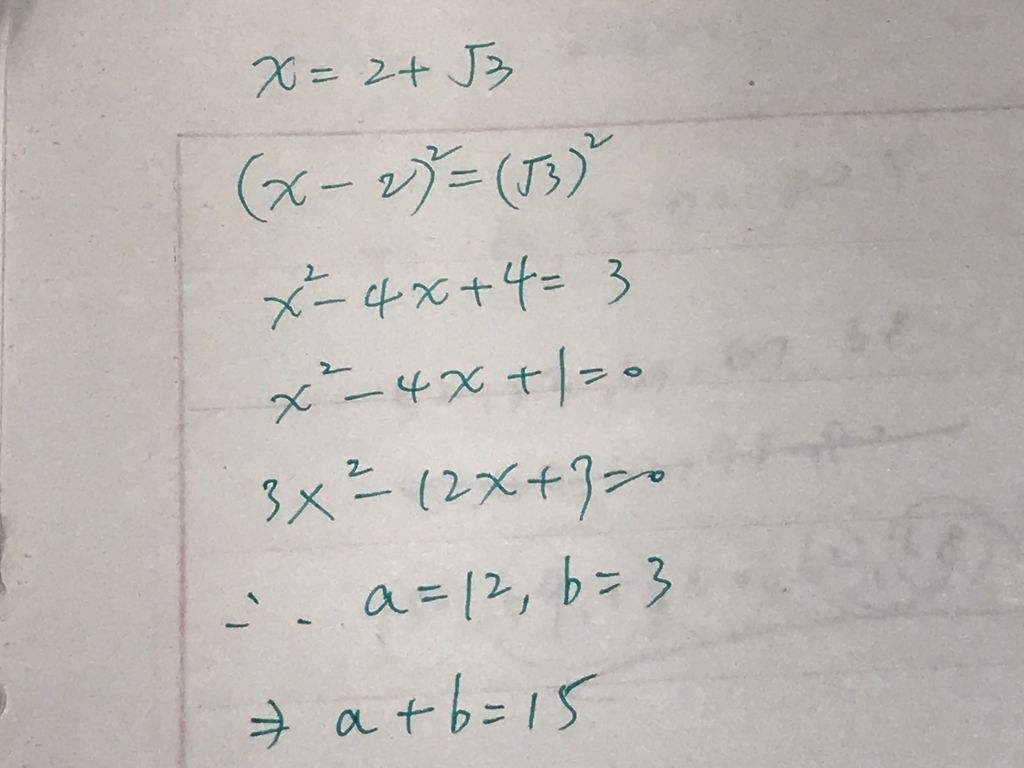 x = 2 + √3
(x - 2)² = (√3)²
x² - 4x + 4 = 3
x² - 4x + 1 = 0
3x² - 12x + 3 = 0
∴ a = 12, b = 3
⇒ a + b = 15